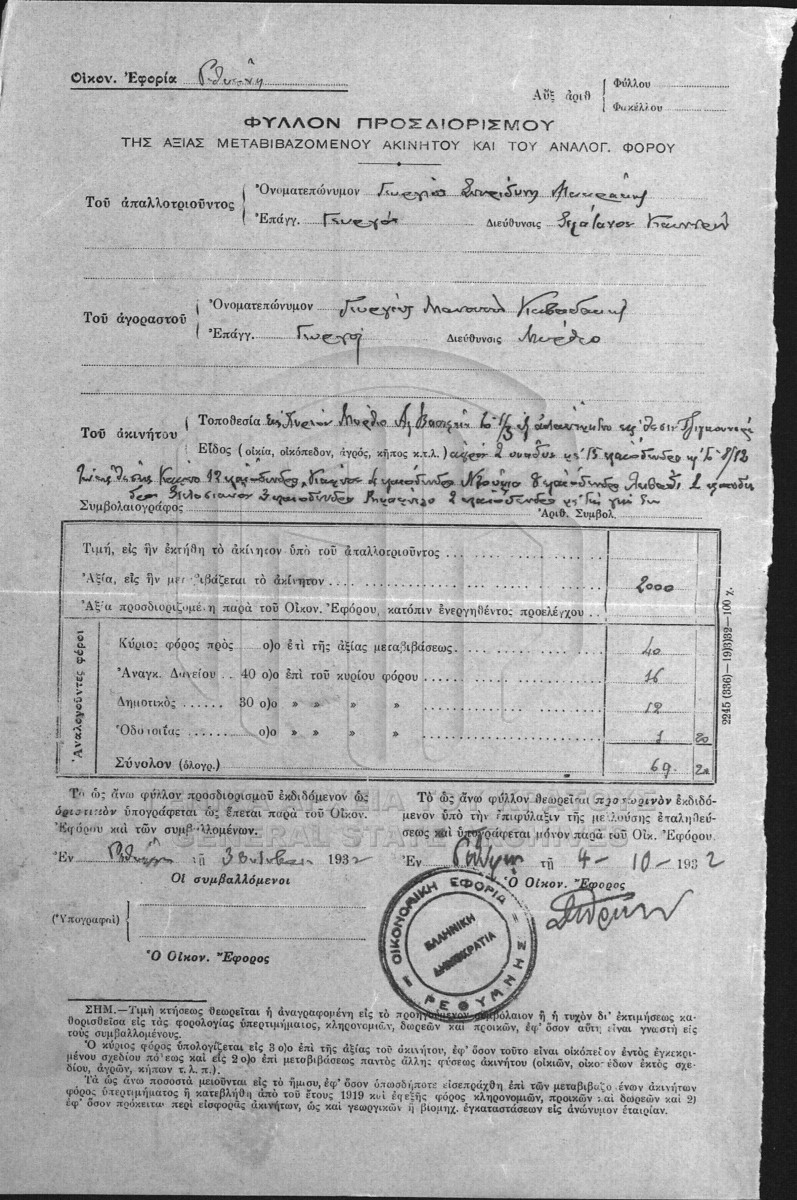 Οἰκον. Ἐφορία Ρεθύμνης
Αὔξ ἀριθ Φύλλου
Φακέλλου
ΦΥΛΛΟΝ ΠΡΟΣΔΙΟΡΙΣΜΟΥ
ΤΗΣ ΑΞΙΑΣ ΜΕΤΑΒΙΒΑΖΟΜΕΝΟΥ ΑΚΙΝΗΤΟΥ ΚΑΙ ΤΟΥ ΑΝΑΛΟΓ. ΦΟΡΟΥ
Τοῦ ἀπαλλοτριοῦντος
Ὀνοματεπώνυμον Γεώργιος
Ἐπάγγ. Γεωργός Διεύθυνσις
Τοῦ ἀγοραστοῦ
Ὀνοματεπώνυμον Γεώργιος Μανουὴλ
Ἐπάγγ. Γεωργός Διεύθυνσις Μύρθιο
Τοῦ ἀκινήτου
Τοποθεσία Μύρθιο
Εἶδος (οἰκία, οἰκόπεδον, ἀγρός, κῆπος κ.τ.λ.)
Συμβολαιογράφος Ἀριθ. Συμβολ.
Τιμή, εἰς ἣν ἐκτήθη τὸ ἀκίνητον ὑπὸ τοῦ ἀπαλλοτριοῦντος
Ἀξία, εἰς ἣν μεταβιβάζεται τὸ ἀκίνητον 2000
Ἀξία προσδιοριζομένη παρὰ τοῦ Οἰκον. Ἐφόρου, κατόπιν ἐνεργηθέντος προελέγχου
Ἀναλογοῦντες φόροι
Κύριος φόρος πρὸς ο)ο ἐπὶ τῆς ἀξίας μεταβιβάσεως 40
Ἀναγκ. Δανείου 40 ο)ο ἐπὶ τοῦ κυρίου φόρου 16
Δημοτικὸς 30 ο)ο » » » » 12
Ὁδοποιΐας ο)ο » » » » 1 20
Σύνολον (ὁλογρ.) 69 20
2245 (336)—19)3)32—100 χ.
Τὸ ὡς ἄνω φύλλον προσδιορισμοῦ ἐκδιδόμενον ὡς
ὁριστικὸν ὑπογράφεται ὡς ἕπεται παρὰ τοῦ Οἰκον.
Ἐφόρου καὶ τῶν συμβαλλομένων.
Ἐν Ρεθύμνῃ τῇ 3 1932
Οἱ συμβαλλόμενοι
(Ὑπογραφαὶ)
Ὁ Οἰκον. Ἔφορος
Τὸ ὡς ἄνω φύλλον θεωρεῖται προσωρινὸν ἐκδιδό-
μενον ὑπὸ τὴν ἐπιφύλαξιν τῆς μελλούσης ἐπαληθεύ-
σεως καὶ ὑπογράφεται μόνον παρὰ τοῦ Οἰκ. Ἐφόρου.
Ἐν Ρεθύμνῃ τῇ 4-10-1932
Ὁ Οἰκον. Ἔφορος
ΟΙΚΟΝΟΜΙΚΗ ΕΦΟΡΙΑ
ΡΕΘΥΜΝΗΣ
ΕΛΛΗΝΙΚΗ
ΔΗΜΟΚΡΑΤΙΑ
GENERAL STATE ARCHIVES
ΣΗΜ.—Τιμὴ κτήσεως θεωρεῖται ἡ ἀναγραφομένη εἰς τὸ προηγούμενον συμβόλαιον ἢ ἡ τυχὸν δι' ἐκτιμήσεως κα-
θορισθεῖσα εἰς τὰς φορολογίας ὑπερτιμήματος, κληρονομιῶν, δωρεῶν καὶ προικῶν, ἐφ' ὅσον αὕτη εἶναι γνωστὴ εἰς
τοὺς συμβαλλομένους.
Ὁ κύριος φόρος ὑπολογίζεται εἰς 3 ο)ο ἐπὶ τῆς ἀξίας τοῦ ἀκινήτου, ἐφ' ὅσον τοῦτο εἶναι οἰκόπεδον ἐντὸς ἐγκεκρι-
μένου σχεδίου πόλεως καὶ εἰς 2 ο)ο ἐπὶ μεταβιβάσεως παντὸς ἄλλης φύσεως ἀκινήτου (οἰκιῶν, οἰκοπέδων ἐκτὸς σχε-
δίου, ἀγρῶν, κήπων τ. λ. π.).
Τὰ ὡς ἄνω ποσοστὰ μειοῦνται εἰς τὸ ἥμισυ, ἐφ' ὅσον ὁπωσδήποτε εἰσεπράχθη ἐπὶ τῶν μεταβιβαζομένων ἀκινήτων
φόρος ὑπερτιμήματος ἢ κατεβλήθη ἀπὸ τοῦ ἔτους 1919 καὶ ἐφεξῆς φόρος κληρονομιῶν, προικῶν καὶ δωρεῶν καὶ 2)
ἐφ' ὅσον πρόκειται περὶ εἰσφορᾶς ἀκινήτων, ὡς καὶ γεωργικῶν ἢ βιομηχ. ἐγκαταστάσεων εἰς ἀνώνυμον ἑταιρίαν.